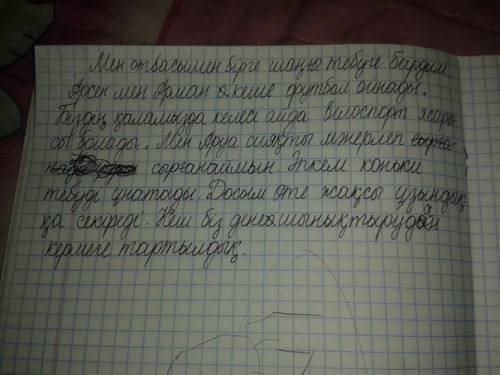 Мен отбасыммен бірге шаңғы тебуге бардым.
Арсен мен Арман кеше футбол ойнады.
Біздің қаламызда келесі айда велоспорт жары-
сы болады. Мен Аруа сияқты мәнерлеп
сырғанаймын. Әпкем коньки
тебуді ұнатады. Досым өте жақсы ұзындық
қа секіреді. Кеш біз дене шынықтыруда
кермеге тартылдық.